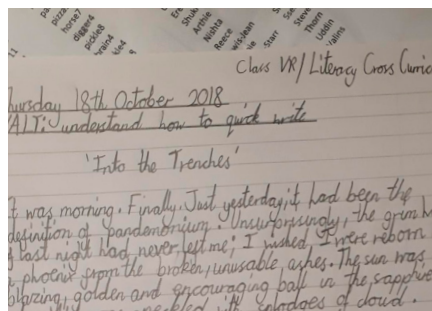 pizza
horse7
digger4
pickle8
Arthie
Nishta
Reece
Starr
Steve
Thorn
Uddin
Class VR/Literacy Cross Curric
hursday 18th October 2018
ALT: understand how to quick write
'Into the Trenches'
t was morning. Finally. Just yesterday, it had been the
definition of pandemonium. Unsurprisingly, the grim
last night had never left me; I wished, I were reborn
phoenix from the broken, unusable, ashes. The sun was
blazing, golden and encouraging ball in the sapphire
splodges of cloud.